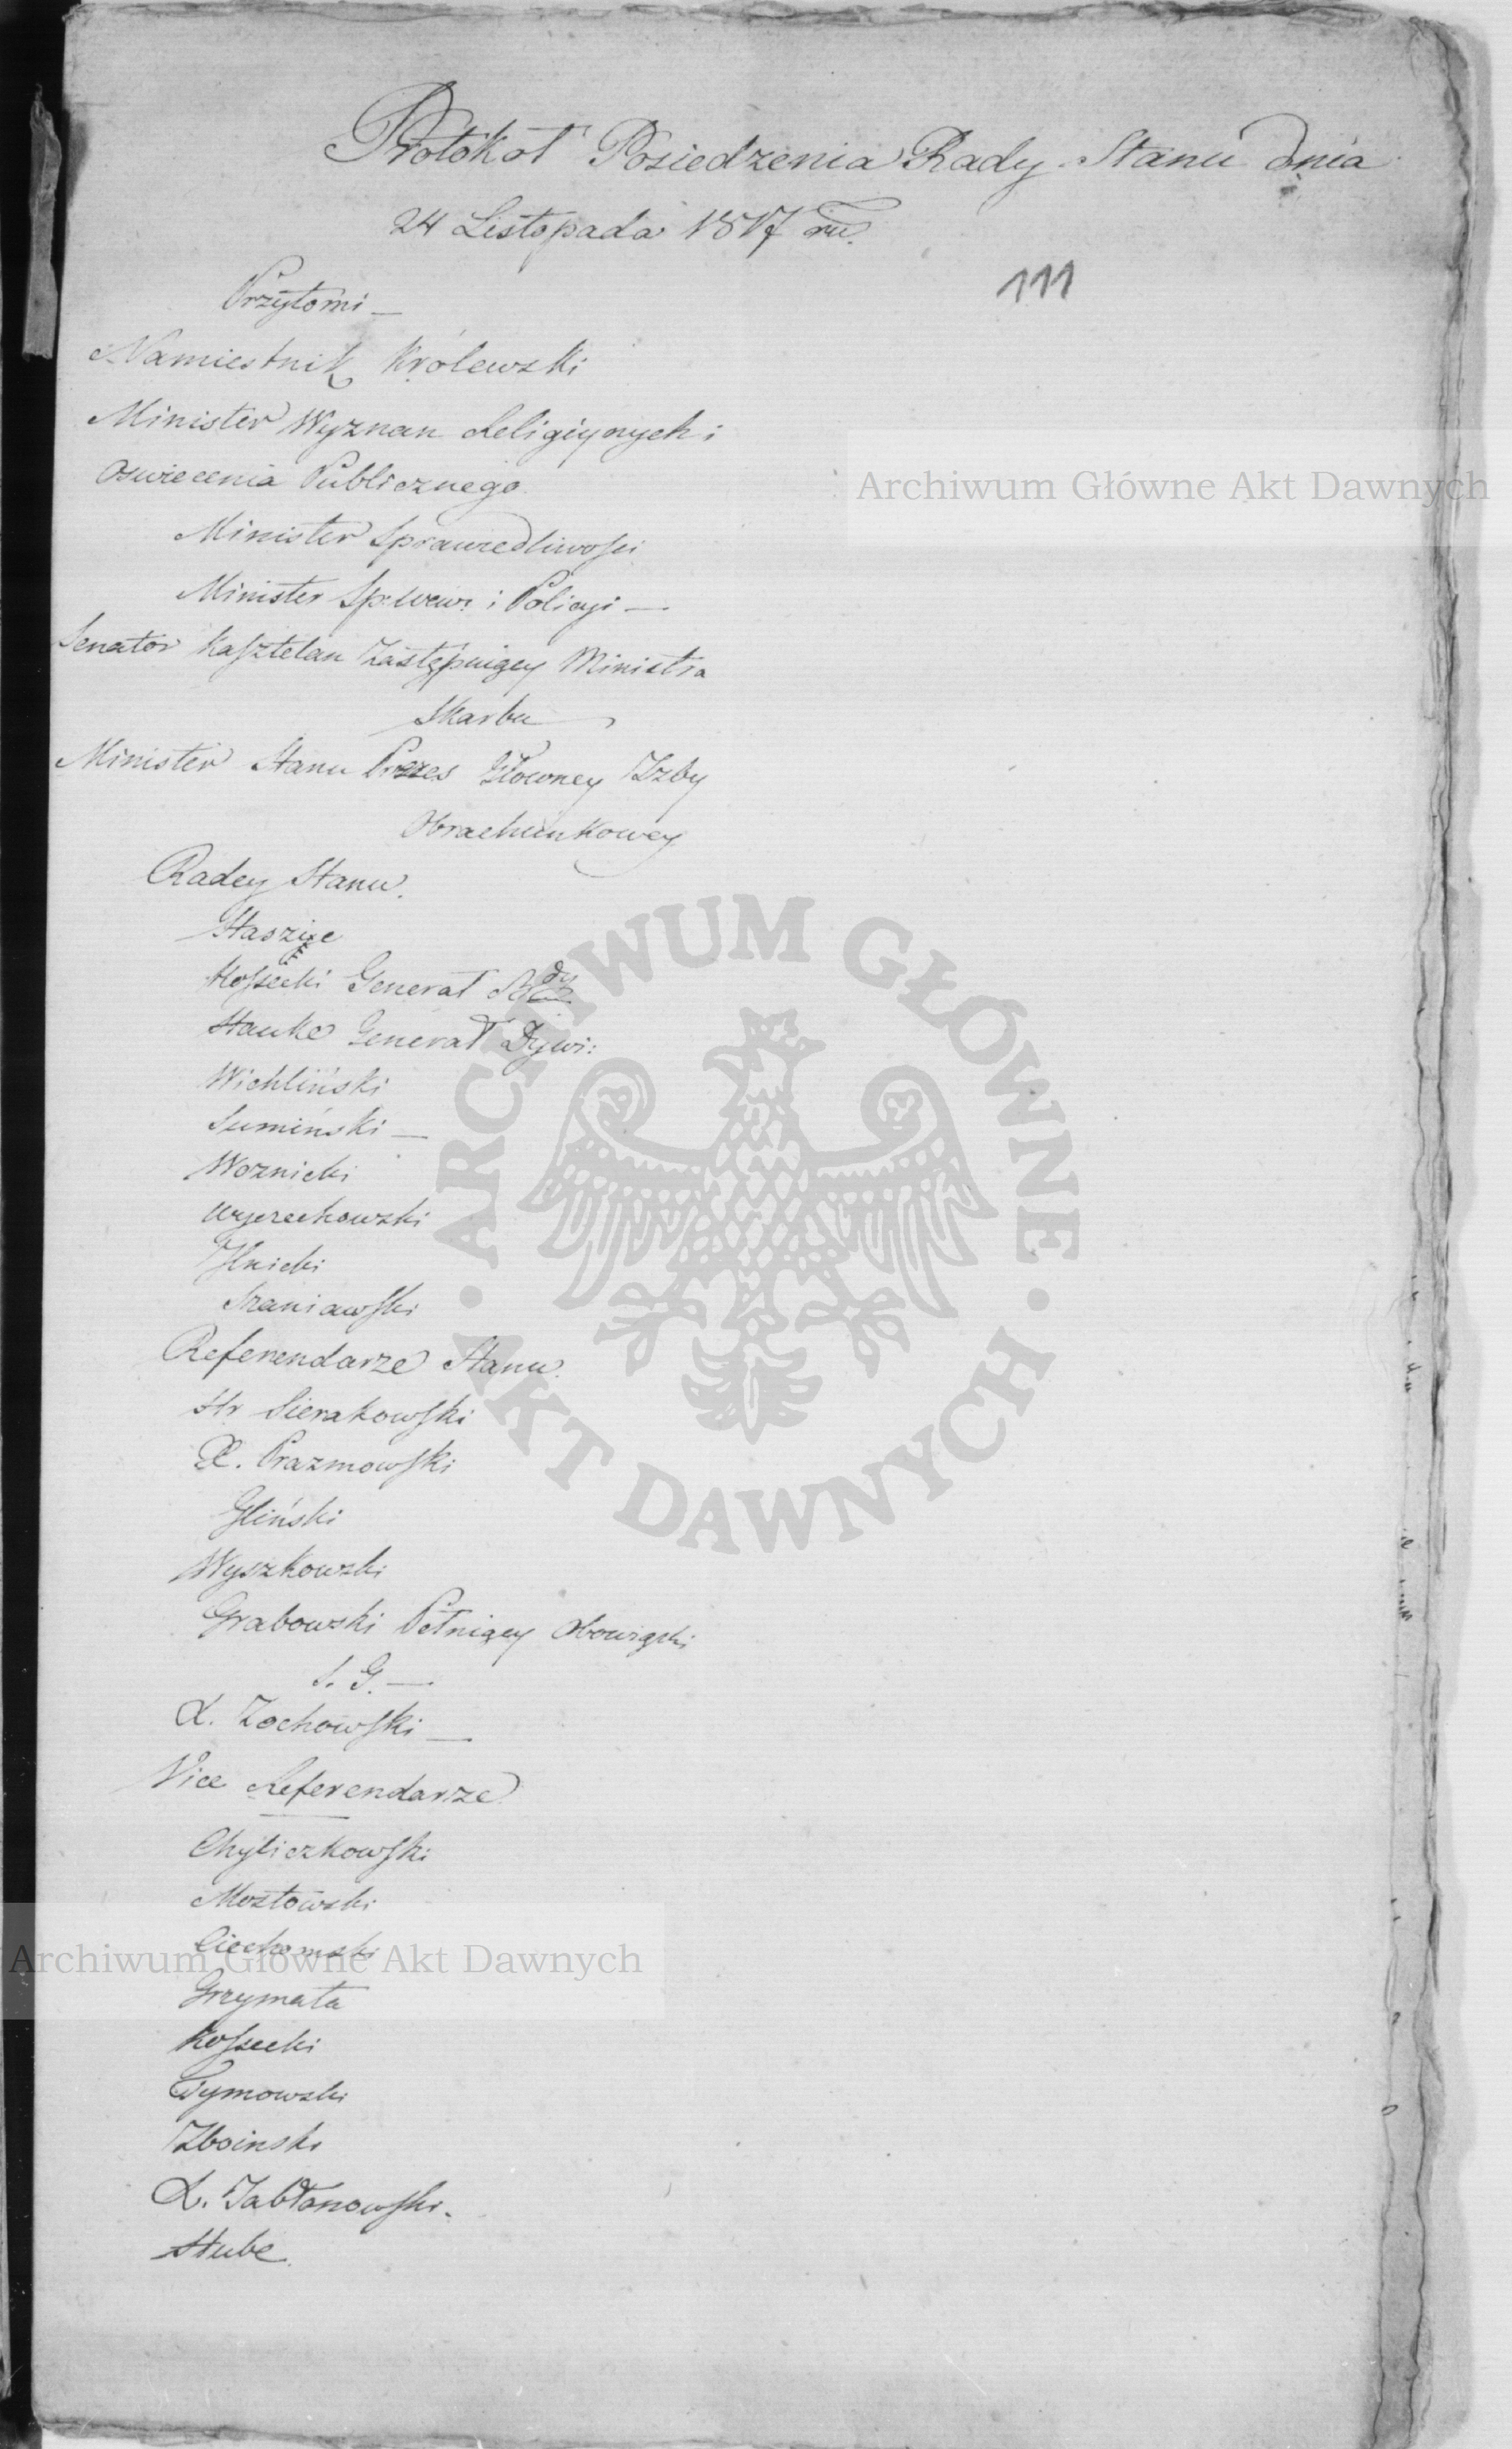 Protokół Posiedzenia Rady Stanu dnia
24 Listopada 1817 ru.
111
Przytomi
Namiestnik Królewski
Minister Wyznan Religiynych i
Oswiecenia Publicznego
Minister Sprawiedliwości
Minister Sp: Wew: i Policyi
Senator Kasztelan Zastępuiący Ministra
Skarbu
Minister Stanu Prezes Głowney Izby
Obrachunkowey
Radcy Stanu.
Staszic
Kossecki Generał
Hauke Generał Dywi:
Wichliński
Sumiński
Woznicki
Wyczechowski
Ilnicki
Szaniawski
Referendarze Stanu.
Hr Sierakowski
X. Prazmowski
Gliński
Wyszkowski
Grabowski Pełniący Obowiązki
S. G.
L. Zochowski
Vice Referendarze
Chyliczkowski
Mostowski
Ciechomski
Grzymała
Kossecki
Tymowski
Zboinski
L. Jabłonowski
Hube
Archiwum Główne Akt Dawnych
Archiwum Główne Akt Dawnych
ARCHIWUM GŁÓWNE AKT DAWNYCH